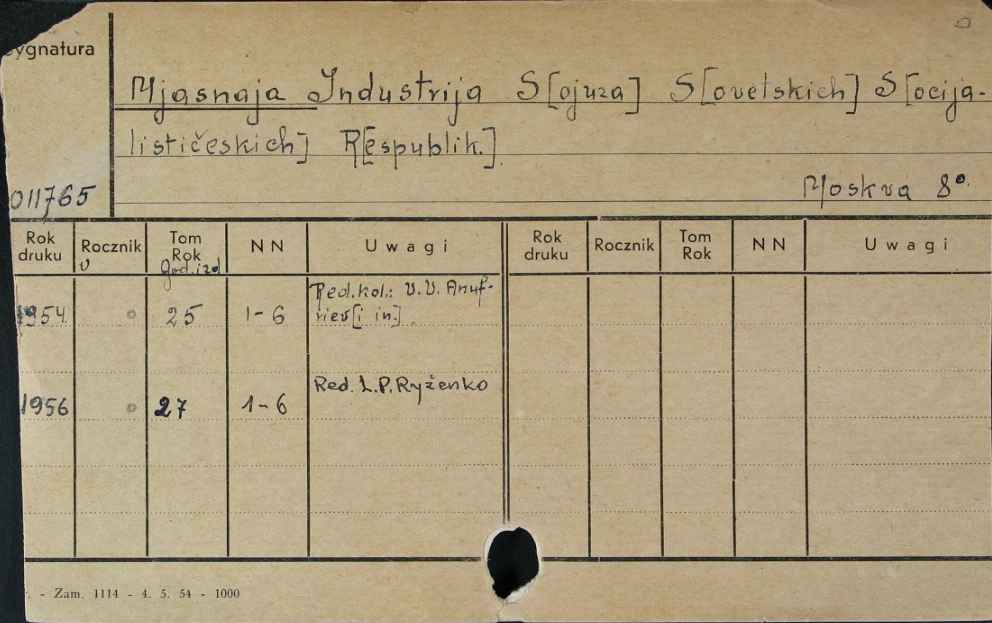 ygnatura
Mjasnaja Industrija S[ojuza] S[ovetskich] S[ocija-
lističeskich] R[espublik.]
011765
Moskva 8°.
Rok druku Rocznik Tom Rok NN Uwagi Rok druku Rocznik Tom Rok NN Uwagi
god. izd
1954 o 25 1-6 Red. kol.: V.V. Anuf-
riev [i in.]
1956 o 27 1-6 Red. L.P. Ryženko
- Zam. 1114 - 4. 5. 54 - 1000